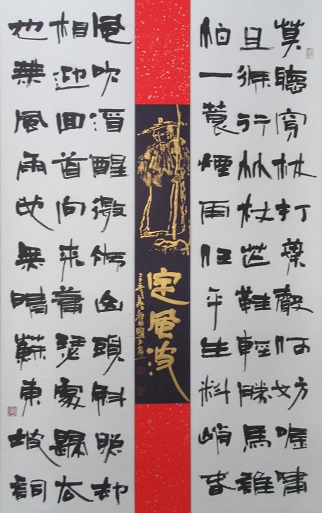 莫聽穿林打葉聲何妨唫嘯
且徐行竹杖芒鞋輕勝馬誰
怕一蓑煙雨任平生料峭春
定風波
風吹酒醒微冷山頭斜照卻
相迎回首向來蕭瑟處歸去
也無風雨也無晴蘇東坡詞